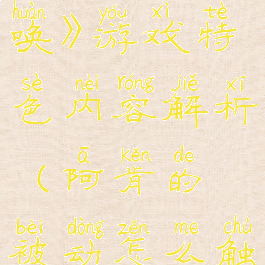 huàn yóu xì tè
唤》游戏特
sè nèi róng jiě xī
色内容解析
ā kěn de
（阿肯的
bèi dòng zěn me chù
被动怎么触